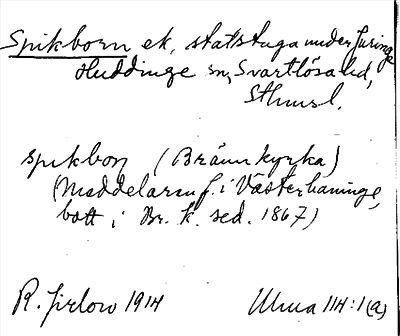 Spikborn ek, statstuga under Juringe
Huddinge sn, Svartlösa hd,
Sthmsl.
spikbon (Brännkyrka)
(Meddelaren f. i Västerhaninge,
bott i Br. k. sed. 1867)
R. Jirlow 1914 Ulma 114:1(a)